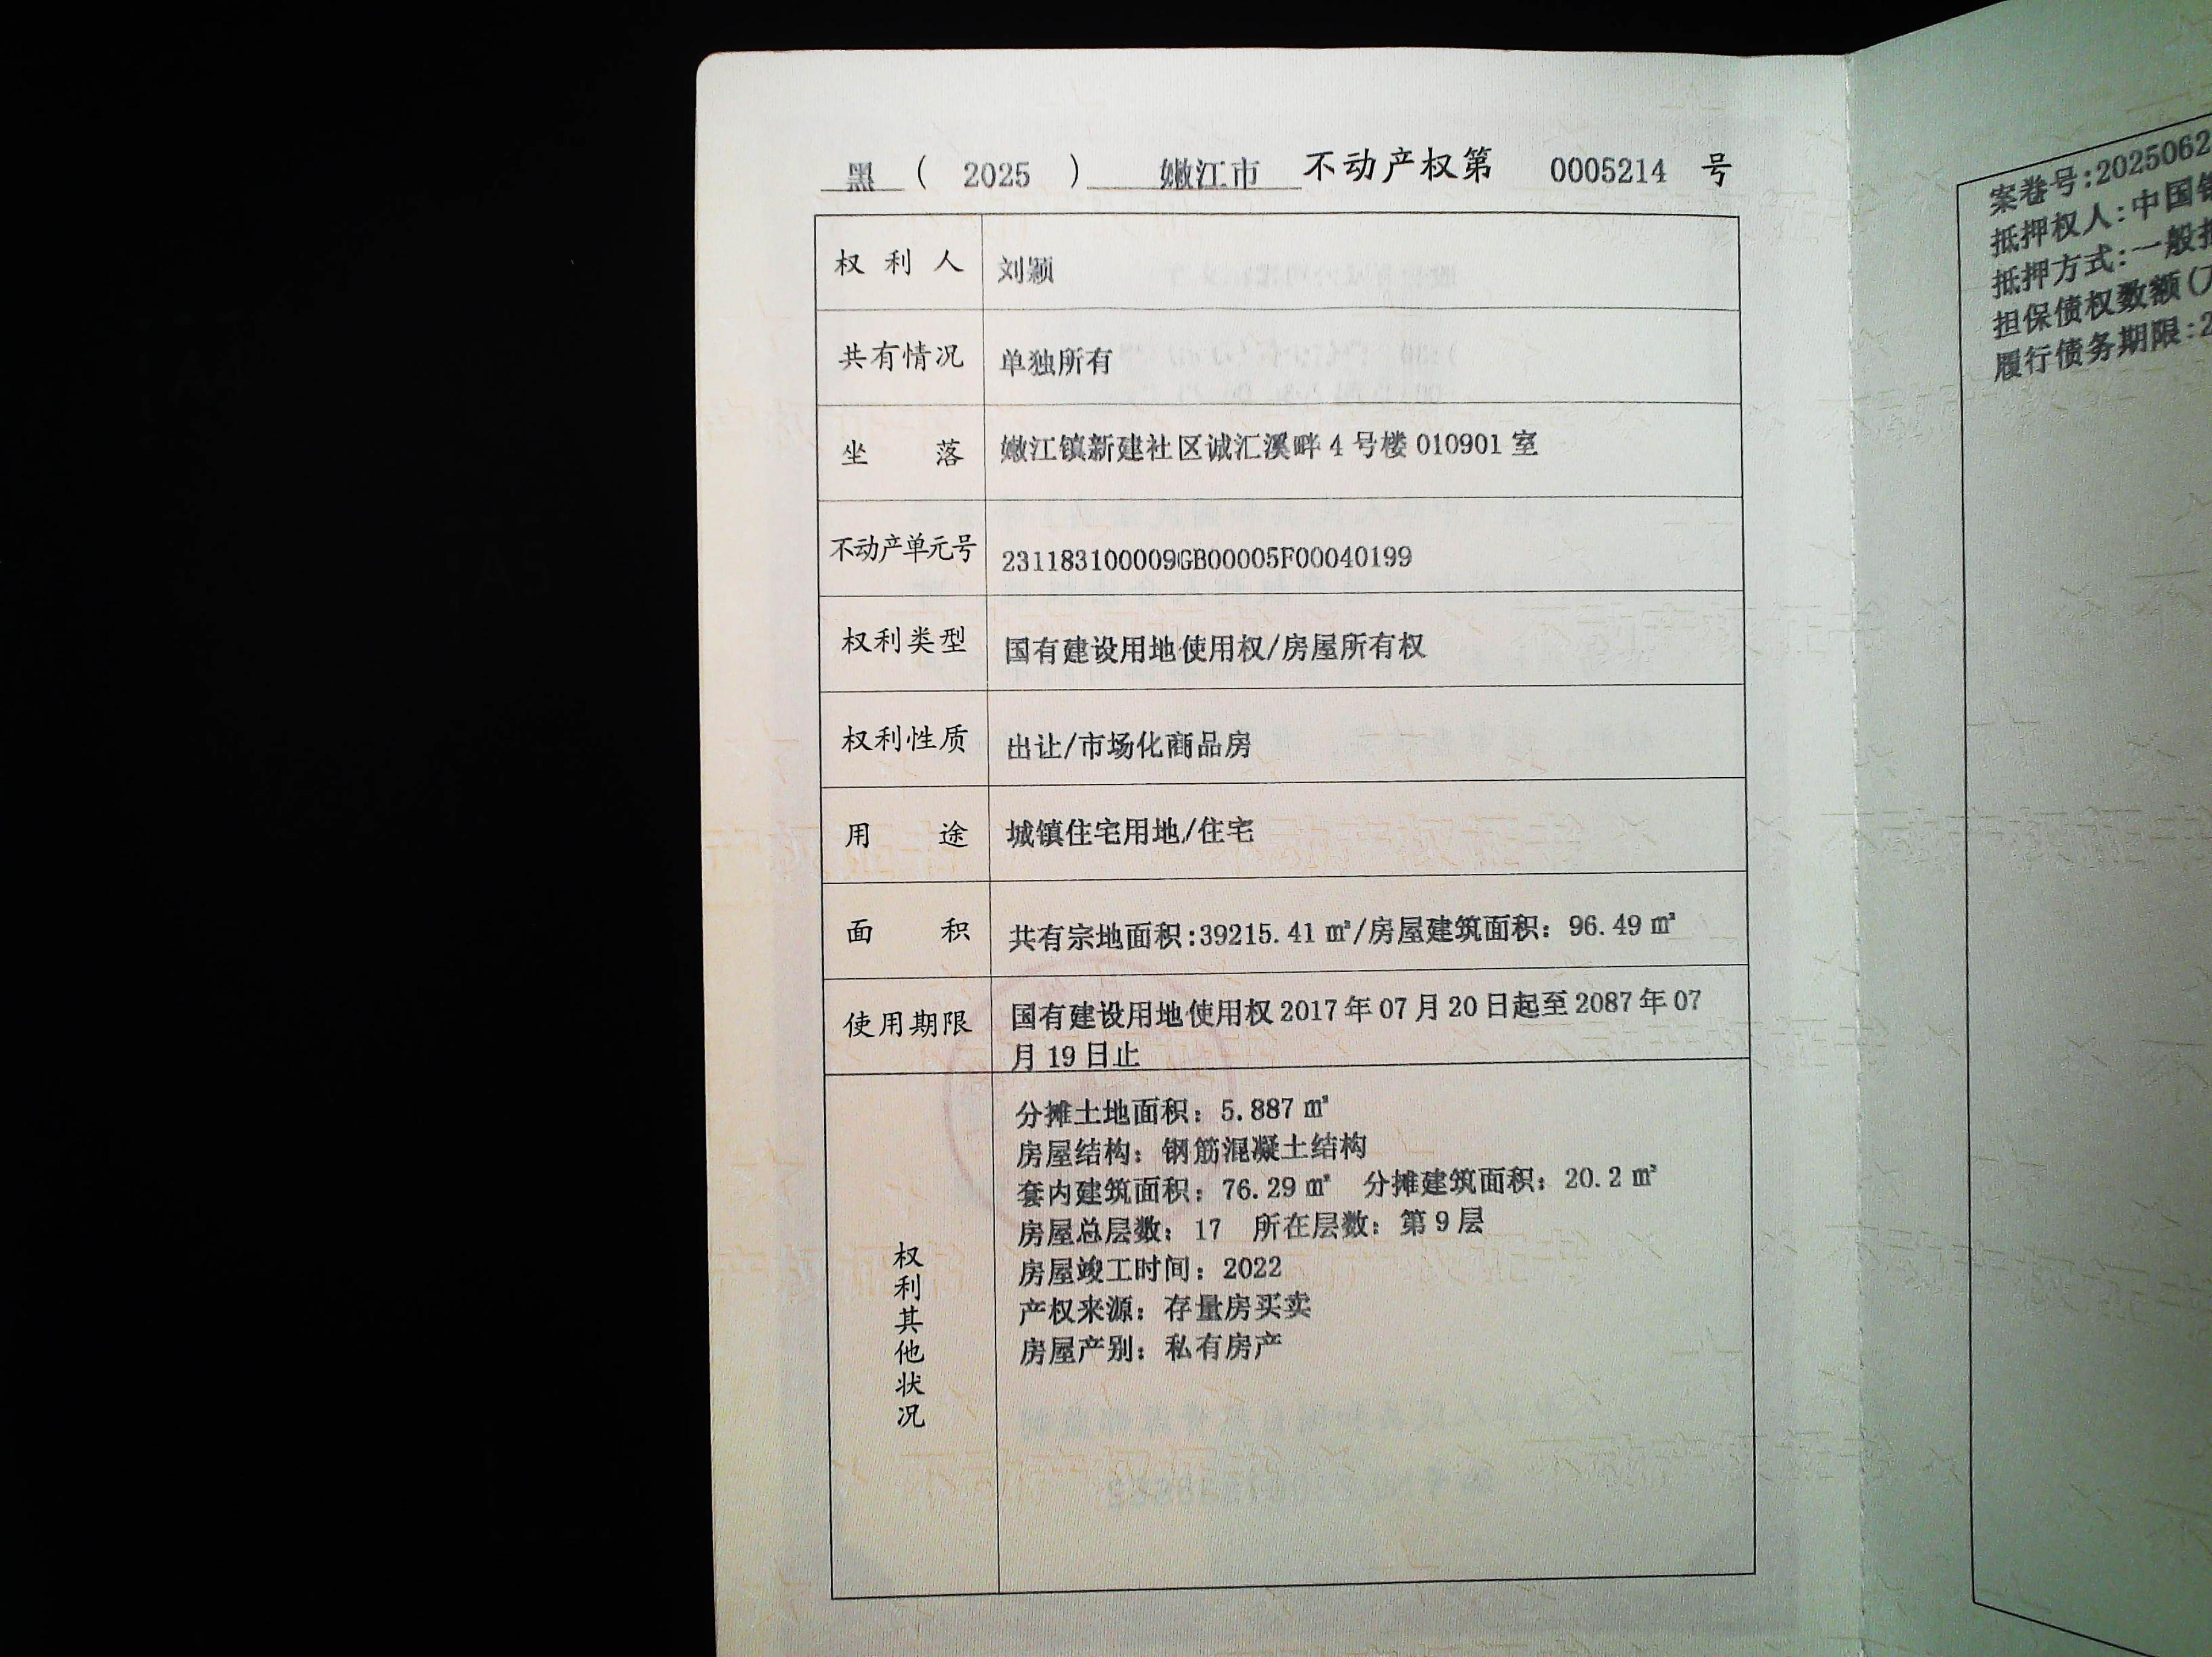 黑 ( 2025 ) 嫩江市 不动产权第 0005214 号
权利人 刘颖
共有情况 单独所有
坐落 嫩江镇新建社区诚汇溪畔 4 号楼 010901 室
不动产单元号 231183100009GB00005F00040199
权利类型 国有建设用地使用权/房屋所有权
权利性质 出让/市场化商品房
用途 城镇住宅用地/住宅
面积 共有宗地面积:39215.41 ㎡/房屋建筑面积: 96.49 ㎡
使用期限 国有建设用地使用权 2017 年 07 月 20 日起至 2087 年 07
月 19 日止
权利其他状况
分摊土地面积: 5.887 ㎡
房屋结构: 钢筋混凝土结构
套内建筑面积: 76.29 ㎡ 分摊建筑面积: 20.2 ㎡
房屋总层数: 17 所在层数: 第 9 层
房屋竣工时间: 2022
产权来源: 存量房买卖
房屋产别: 私有房产
案卷号:2025062
抵押权人:中国
抵押方式:一般
担保债权数额(
履行债务期限:2